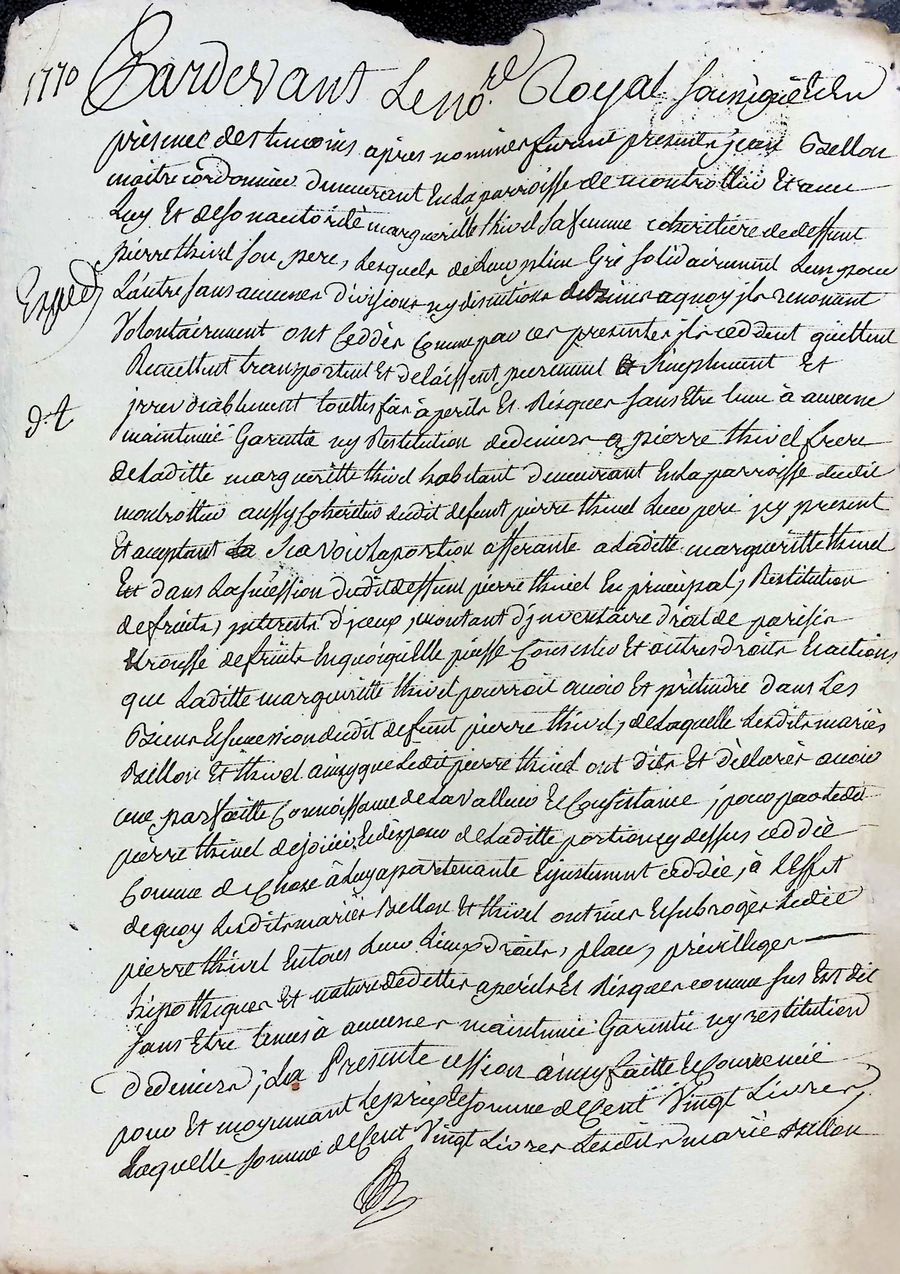 1770 Pardevant Le no.re Royal soussigné Et En
présence des temoins apres nommés furent presents jean Bellon
maitre cordonnier demeurant En La parroisse de montrottier Et avec
Luy Et de son autorité margueritte thivel sa femme coheritiere de deffunt
pierre thivel son pere, Lesquels de Leur plein Gré solidairement L'un pour
Expedié
L'autre sans aucunes divisions ny discutions de biens a quoy ils renoncent
Volontairement ont Ceddés Comme par ces presentes ils ceddent quittent
Remettent transportent Et delaissent purement Et simplement Et
jrrevocablement touttefois à perils Et Risques sans Etre tenu à aucune
d.t
maintenüe Garantie ny Restitution de deniers a pierre thivel frere
de Laditte margueritte thivel habitant demeurant En La parroisse dudit
montrottier aussy Coheritier dudit defunt pierre thivel Leur pere jcy present
Et acceptant Scavoir La portion afferante a Laditte margueritte thivel
Et dans La sucession dudit deffunt pierre thivel En principal, Restitution
de fruits, interets d'jceux, montant d'jnventaire droit de parisis
trousse de fruits En quoiqu'elle puisse Consister Et autres droits Et actions
que Laditte margueritte thivel pourroit avoir Et prétendre dans Les
Biens Et sucession dudit defunt pierre thivel, de Laquelle Lesdits mariés
Bellon Et thivel ainsy que Ledit pierre thivel ont dits Et déclarés avoir
une parfaitte Connoissance de La Valleur Et Consistance ; pour par Ledit
pierre thivel de jouir Et disposer de Laditte portion cy dessus ceddée
Comme de Chose à Luy apartenante Et justement ceddée, à L'Effet
de quoy Lesdits mariés Bellon Et thivel ont mis Et subrogés Ledit
pierre thivel En tous Leurs Lieux, droits, place, privilleges
hipotheques Et nature de dettes a perils Et Risques comme sus Est dit
sans Etre tenus à aucunes maintenüe Garantie ny restitution
de deniers ; La Presente cession ainsy faitte Et Convenüe
pour Et moyennant Le prix Et somme de Cent Vingt Livres,
Laquelle somme de Cent Vingt Livres Lesdits mariés Bellon